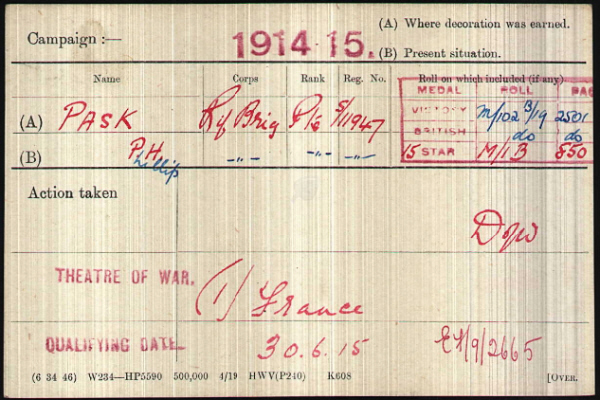 Campaign :—
1914 15.
(A) Where decoration was earned.
(B) Present situation.
Name Corps Rank Reg. No. Roll on which included (if any)
MEDAL ROLL PAG
(A) PASK Rif Brig Pte S/11947 VICTORY M/102 B19 2501
BRITISH do do
(B) P.H. Phillip -„- -„- -„- 15 STAR M/1 B 850
Action taken
D of W
THEATRE OF WAR.
(1) France
QUALIFYING DATE
30.6.15
EF/9/2665
(6 34 46) W234—HP5590 500,000 4/19 HWV(P240) K608
[OVER.